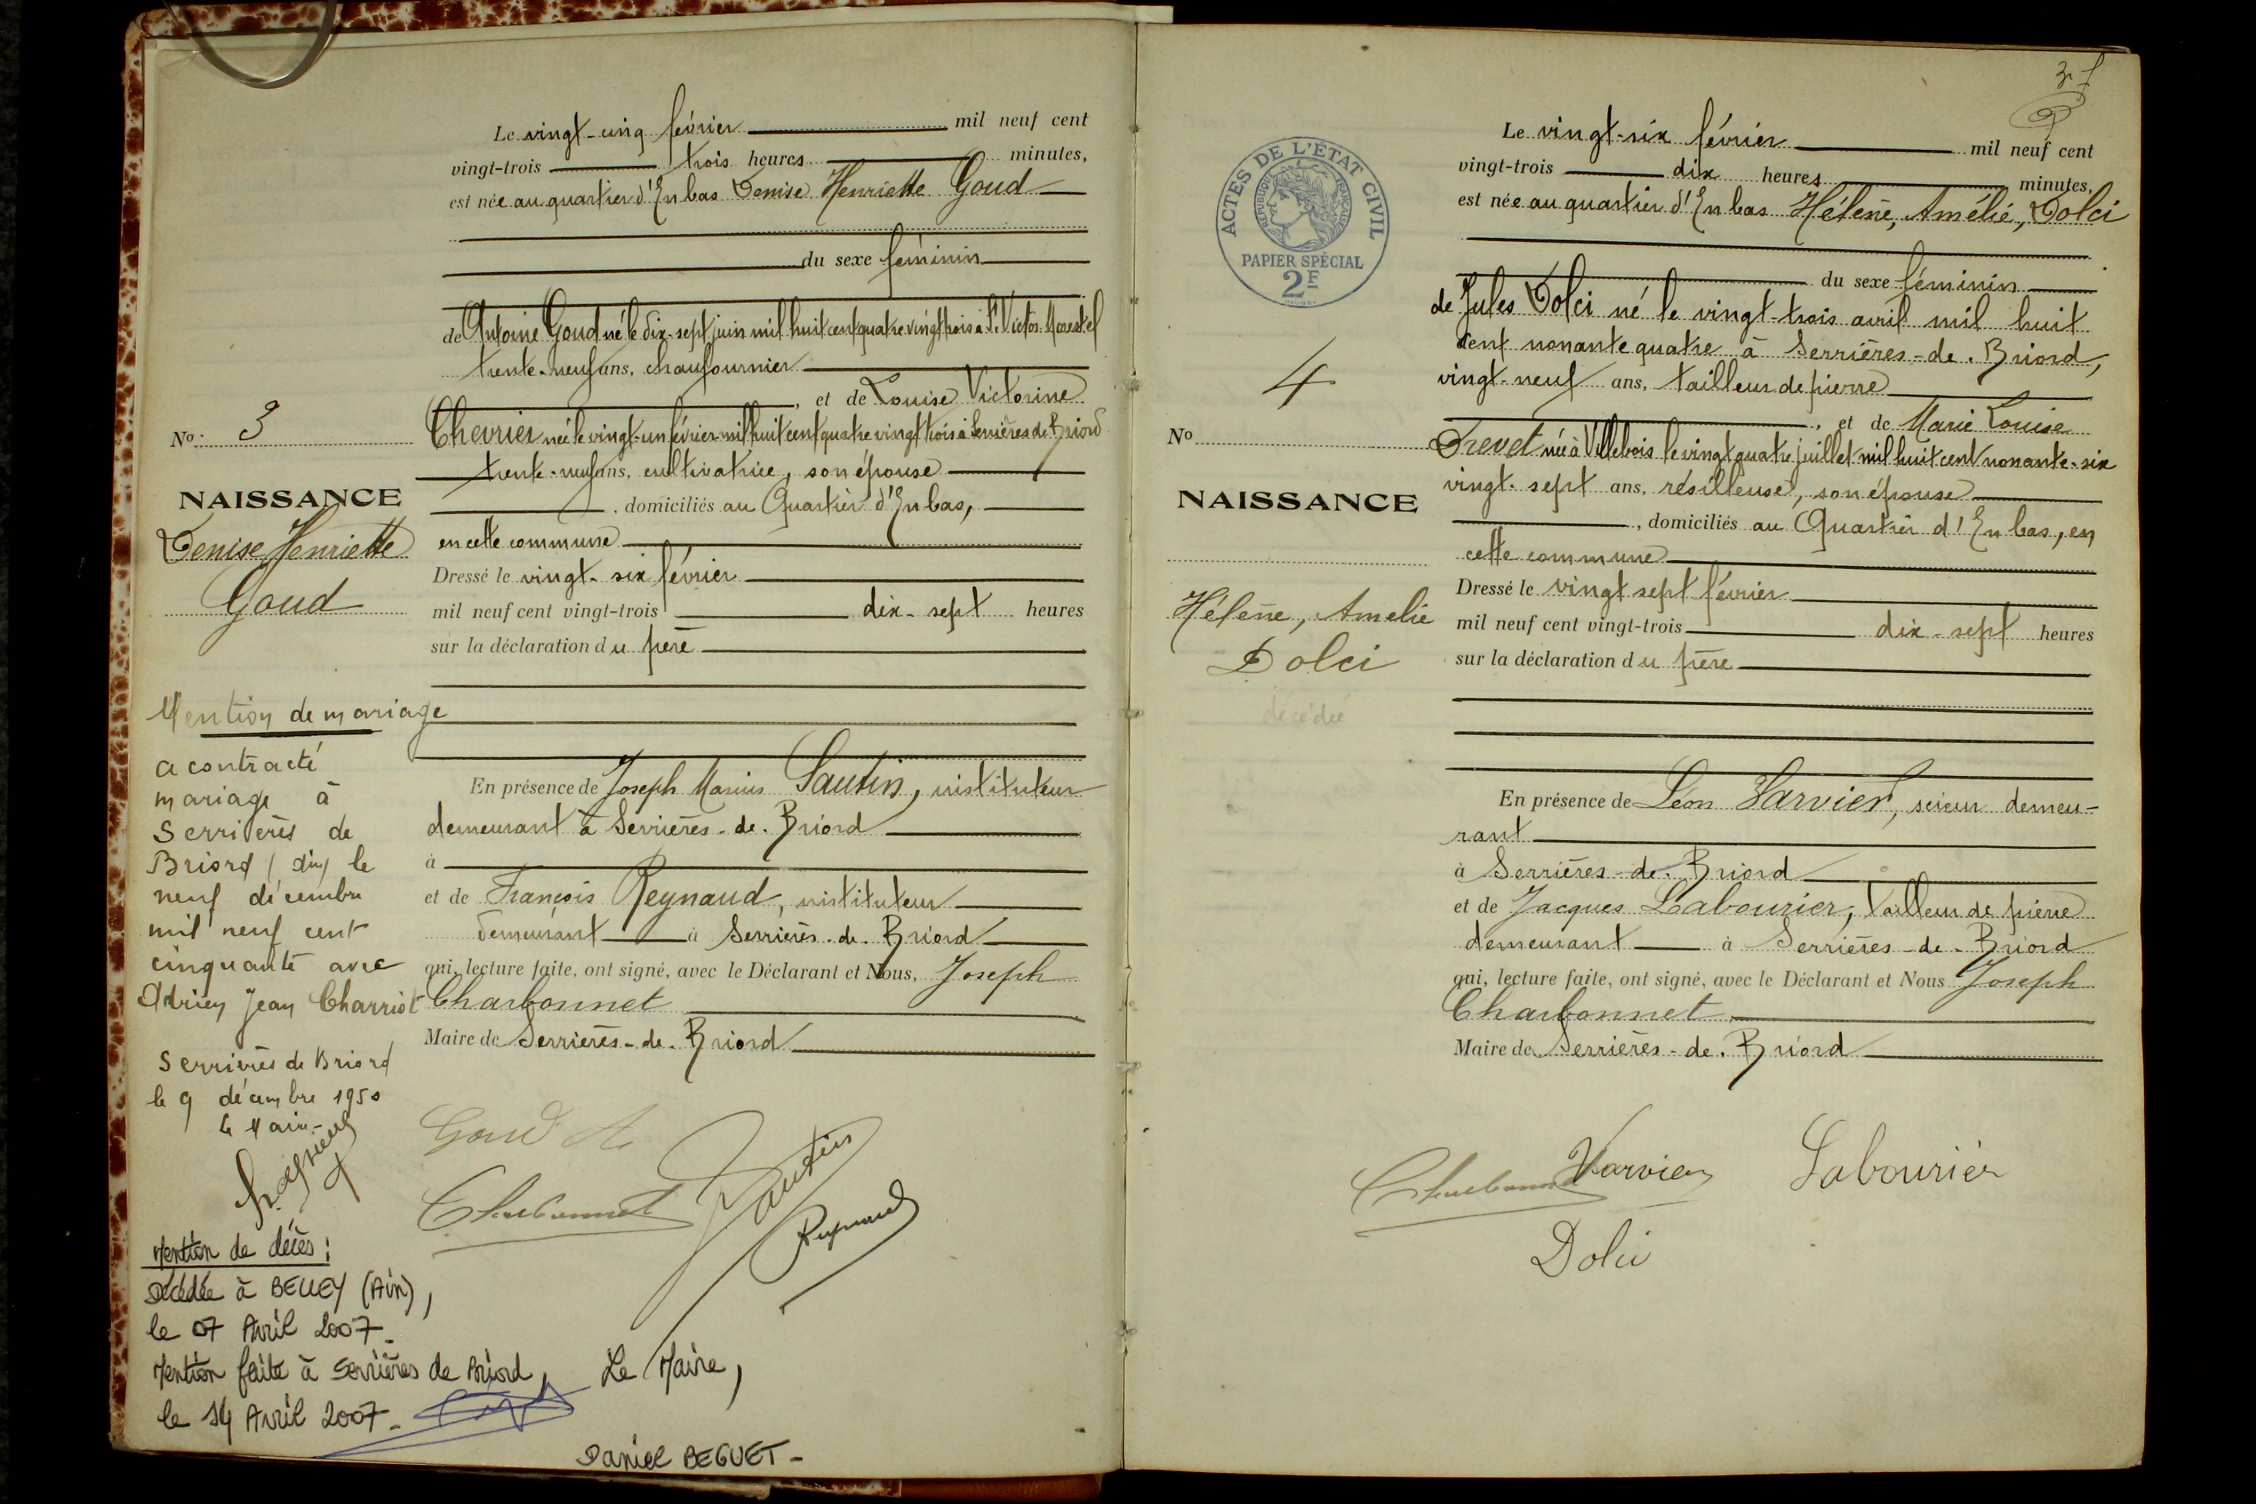 Le vingt-cinq février mil neuf cent
vingt-trois trois heures minutes,
est née au quartier d'En bas Denise Henriette Goud
du sexe féminin
de Antoine Goud né le dix-sept juin mil huit cent quatre vingt trois à St Victor Morestel
trente-neuf ans, chaufournier
, et de Louise Victorine
Chevrier née le vingt-un février mil huit cent quatre vingt trois à Serrières de Briord
trente-neuf ans, cultivatrice, son épouse
, domiciliés au Quartier d'En bas,
en cette commune
Dressé le vingt-six février
mil neuf cent vingt-trois dix-sept heures
sur la déclaration du père
En présence de Joseph Marius Sautin, instituteur
demeurant à Serrières-de-Briord
à
et de François Reynaud, instituteur
demeurant à Serrières-de-Briord
qui, lecture faite, ont signé, avec le Déclarant et Nous, Joseph
Charbonnet
Maire de Serrières-de-Briord
Goud A
Charbonnet Sautin
Reynaud
No 3
NAISSANCE
Denise Henriette
Goud
Mention de mariage
a contracté
mariage à
Serrières de
Briord (Ain) le
neuf décembre
mil neuf cent
cinquante avec
Adrien Jean Charriot
Serrières de Briord
le 9 décembre 1950
Le Maire
Mention de décès :
Décédée à BELLEY (Ain),
le 07 Avril 2007.
Mention faite à Serrières de Briord, Le Maire,
le 14 Avril 2007.
Daniel BEGUET-
ACTES DE L'ÉTAT CIVIL
RÉPUBLIQUE FRANÇAISE
PAPIER SPÉCIAL
2F
Le vingt-six février mil neuf cent
vingt-trois dix heures minutes,
est née au quartier d'En bas Hélène, Amélie, Dolci
du sexe féminin
de Jules Dolci né le vingt-trois avril mil huit
cent nonante quatre à Serrières-de-Briord,
vingt-neuf ans, tailleur de pierre
, et de Marie Louise
Drevet née à Villebois le vingt quatre juillet mil huit cent nonante-six
vingt-sept ans, résilleuse, son épouse
, domiciliés au Quartier d'En bas, en
cette commune
Dressé le vingt sept février
mil neuf cent vingt-trois dix-sept heures
sur la déclaration du père
En présence de Léon Varvier, scieur demeu-
rant
à Serrières-de-Briord
et de Jacques Labourier, tailleur de pierre
demeurant à Serrières-de-Briord
qui, lecture faite, ont signé, avec le Déclarant et Nous Joseph
Charbonnet
Maire de Serrières-de-Briord
Charbonnet Varvier Labourier
Dolci
4
No
NAISSANCE
Hélène, Amélie
Dolci
décédée